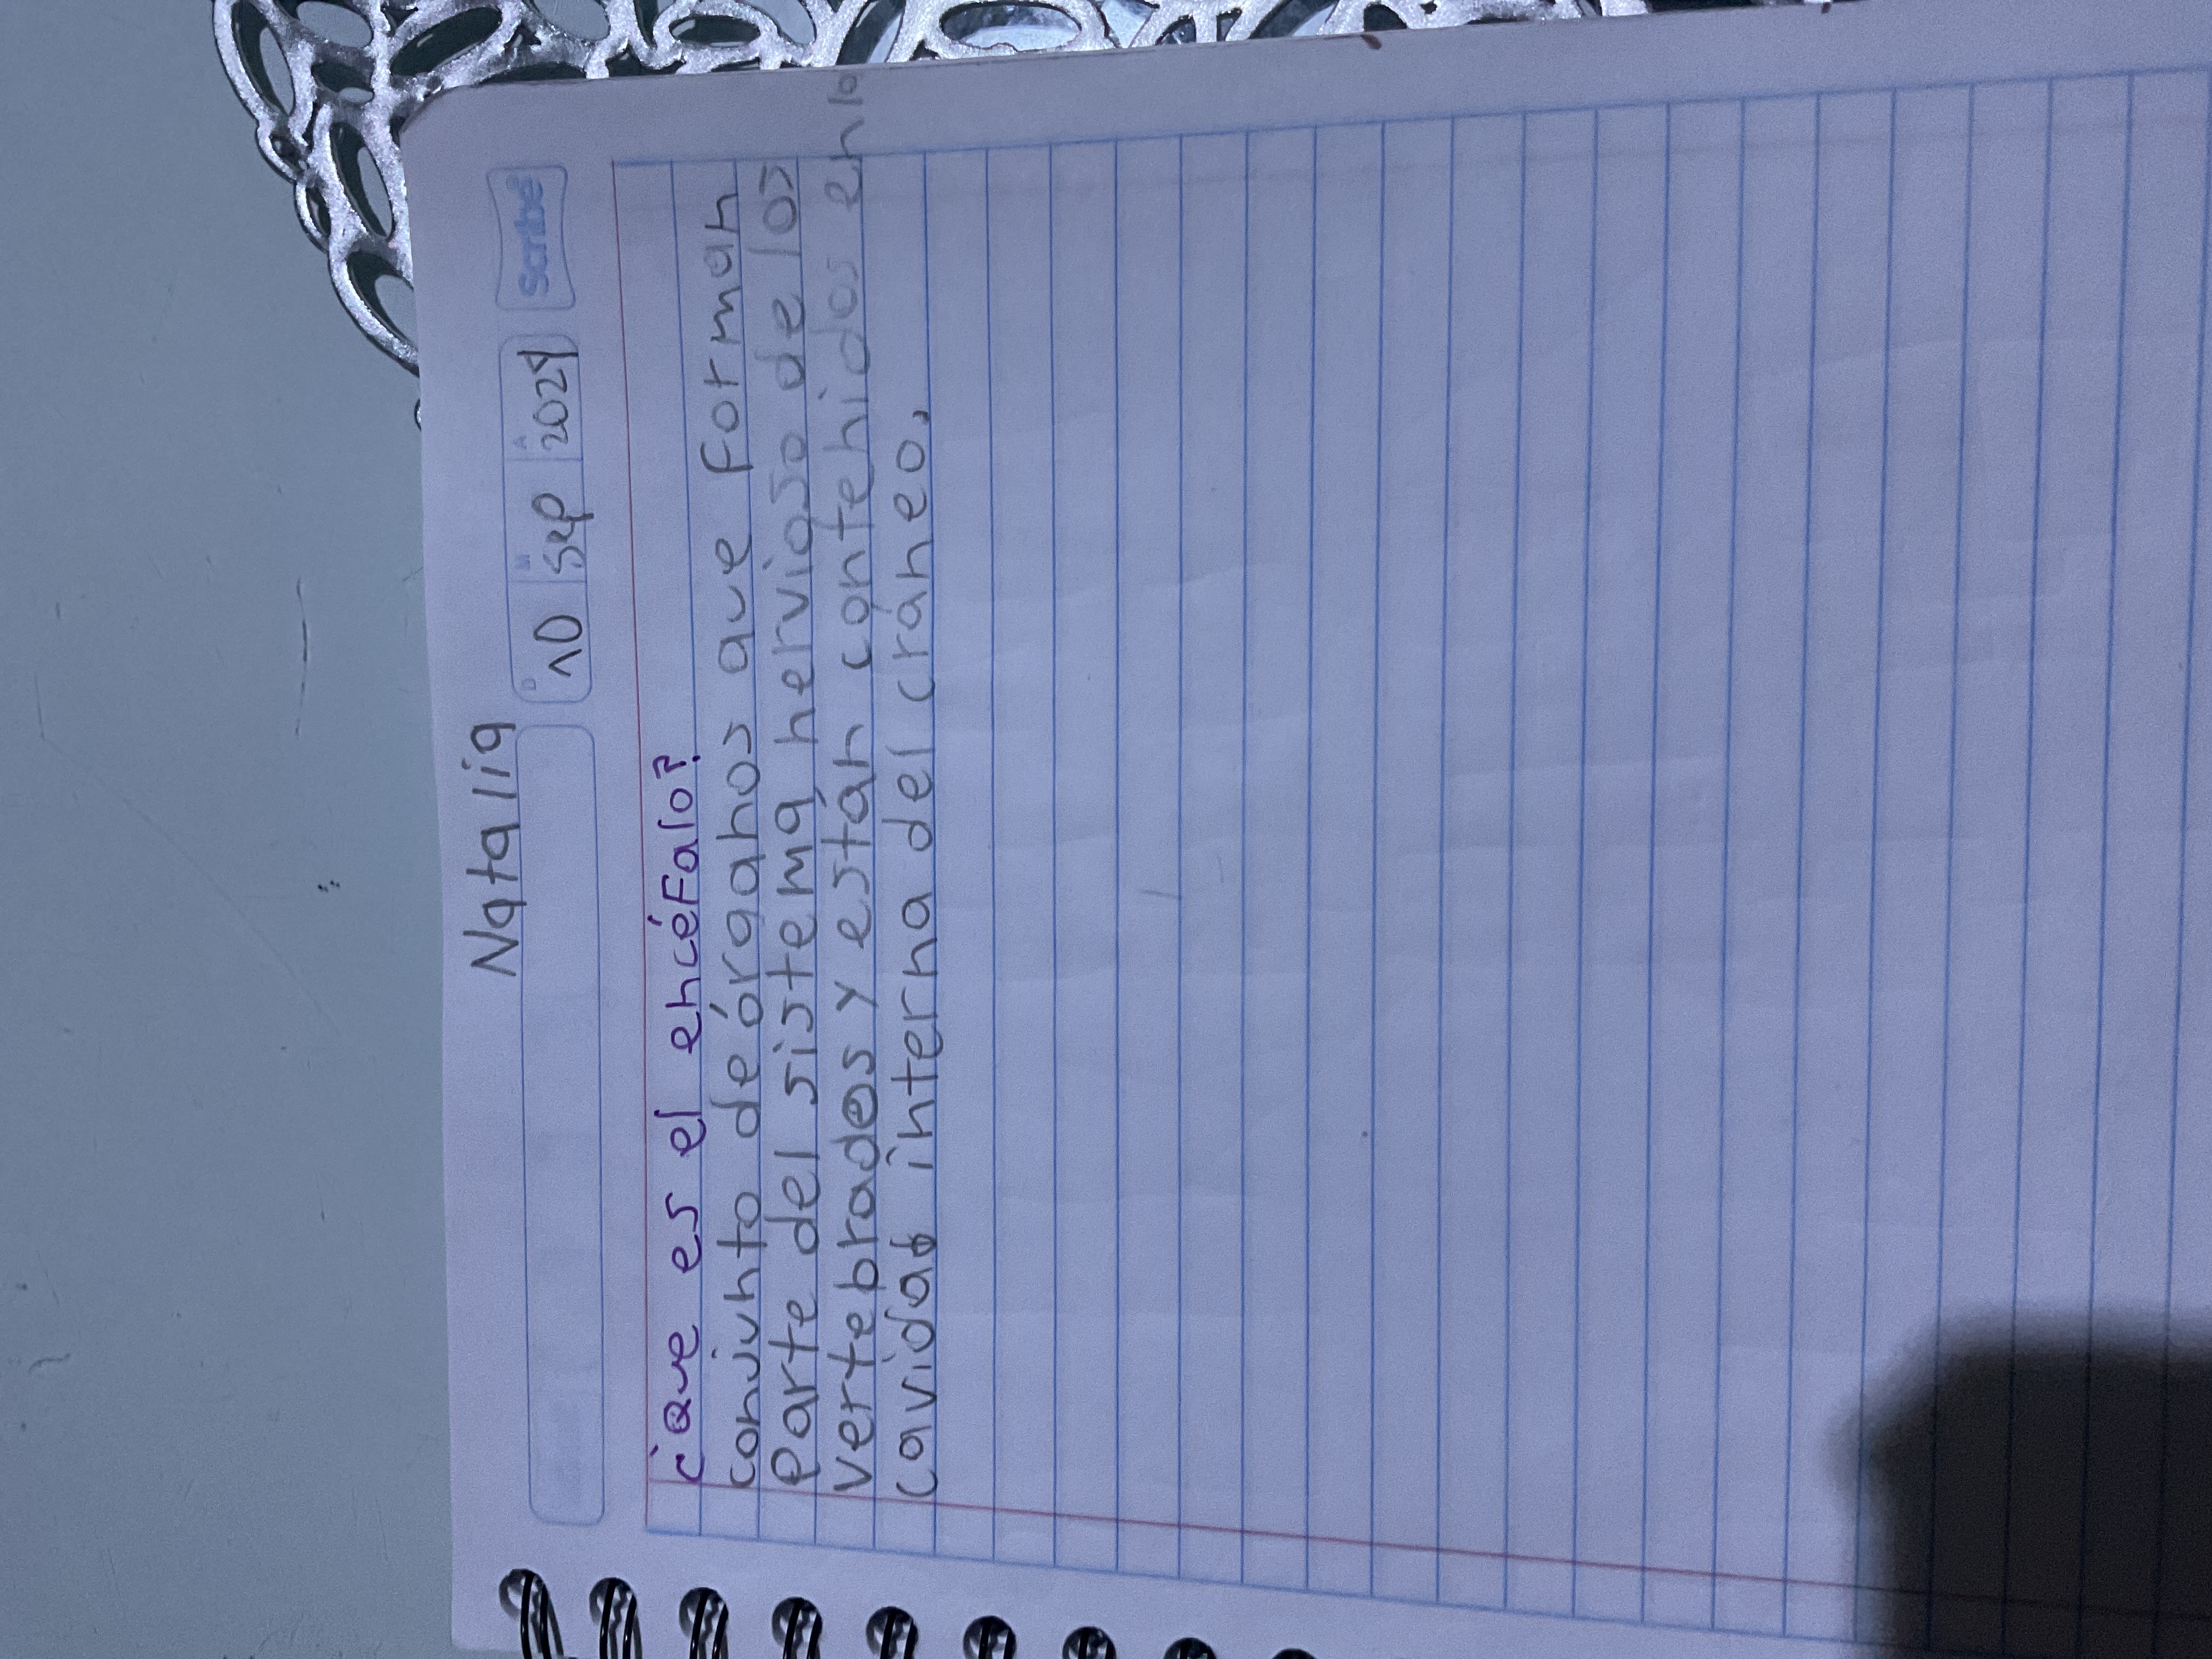 Natalia
D M A
10 Sep 2024 Scribe
¿Que es el encéfalo?
conjunto de órganos que forman
Parte del sistema nervioso de los
vertebrados y están contenidos en la
cavidad interna del cráneo.